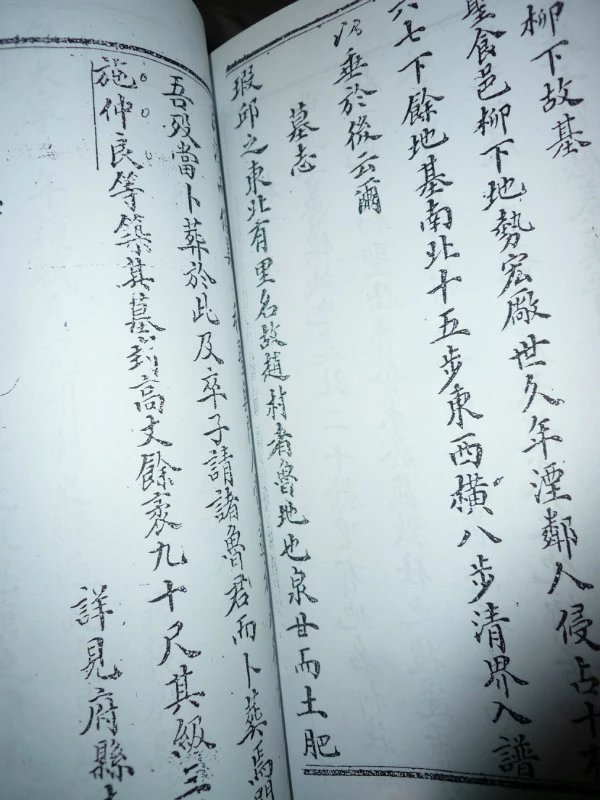 柳下故基
聖食邑柳下地勢宏厰世久年湮鄰人侵占十
六七下餘地基南北十五步東西橫八步清界入譜
以垂於後云爾
墓志
瑕邱之東北有里名故趙村者魯地也泉甘而土肥
吾歿當卜葬於此及卒子請諸魯君而卜葬焉門
施仲良等築其墓封高丈餘袤九十尺其級三
詳見府縣